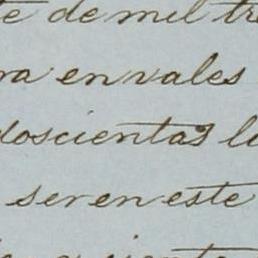 te de mil tre
ra en vales
doscientas li
seren este